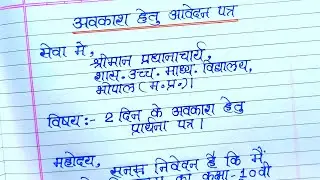 अवकाश हेतु आवेदन पत्र
सेवा मे,
श्रीमान प्रधानाचार्य,
शास. उच्च. माध्य. विद्यालय,
भोपाल (म.प्र.)।
विषय:- 2 दिन के अवकाश हेतु
प्रार्थना पत्र।
महोदय,
सनम्र निवेदन है कि मैं
का कक्षा-10वी